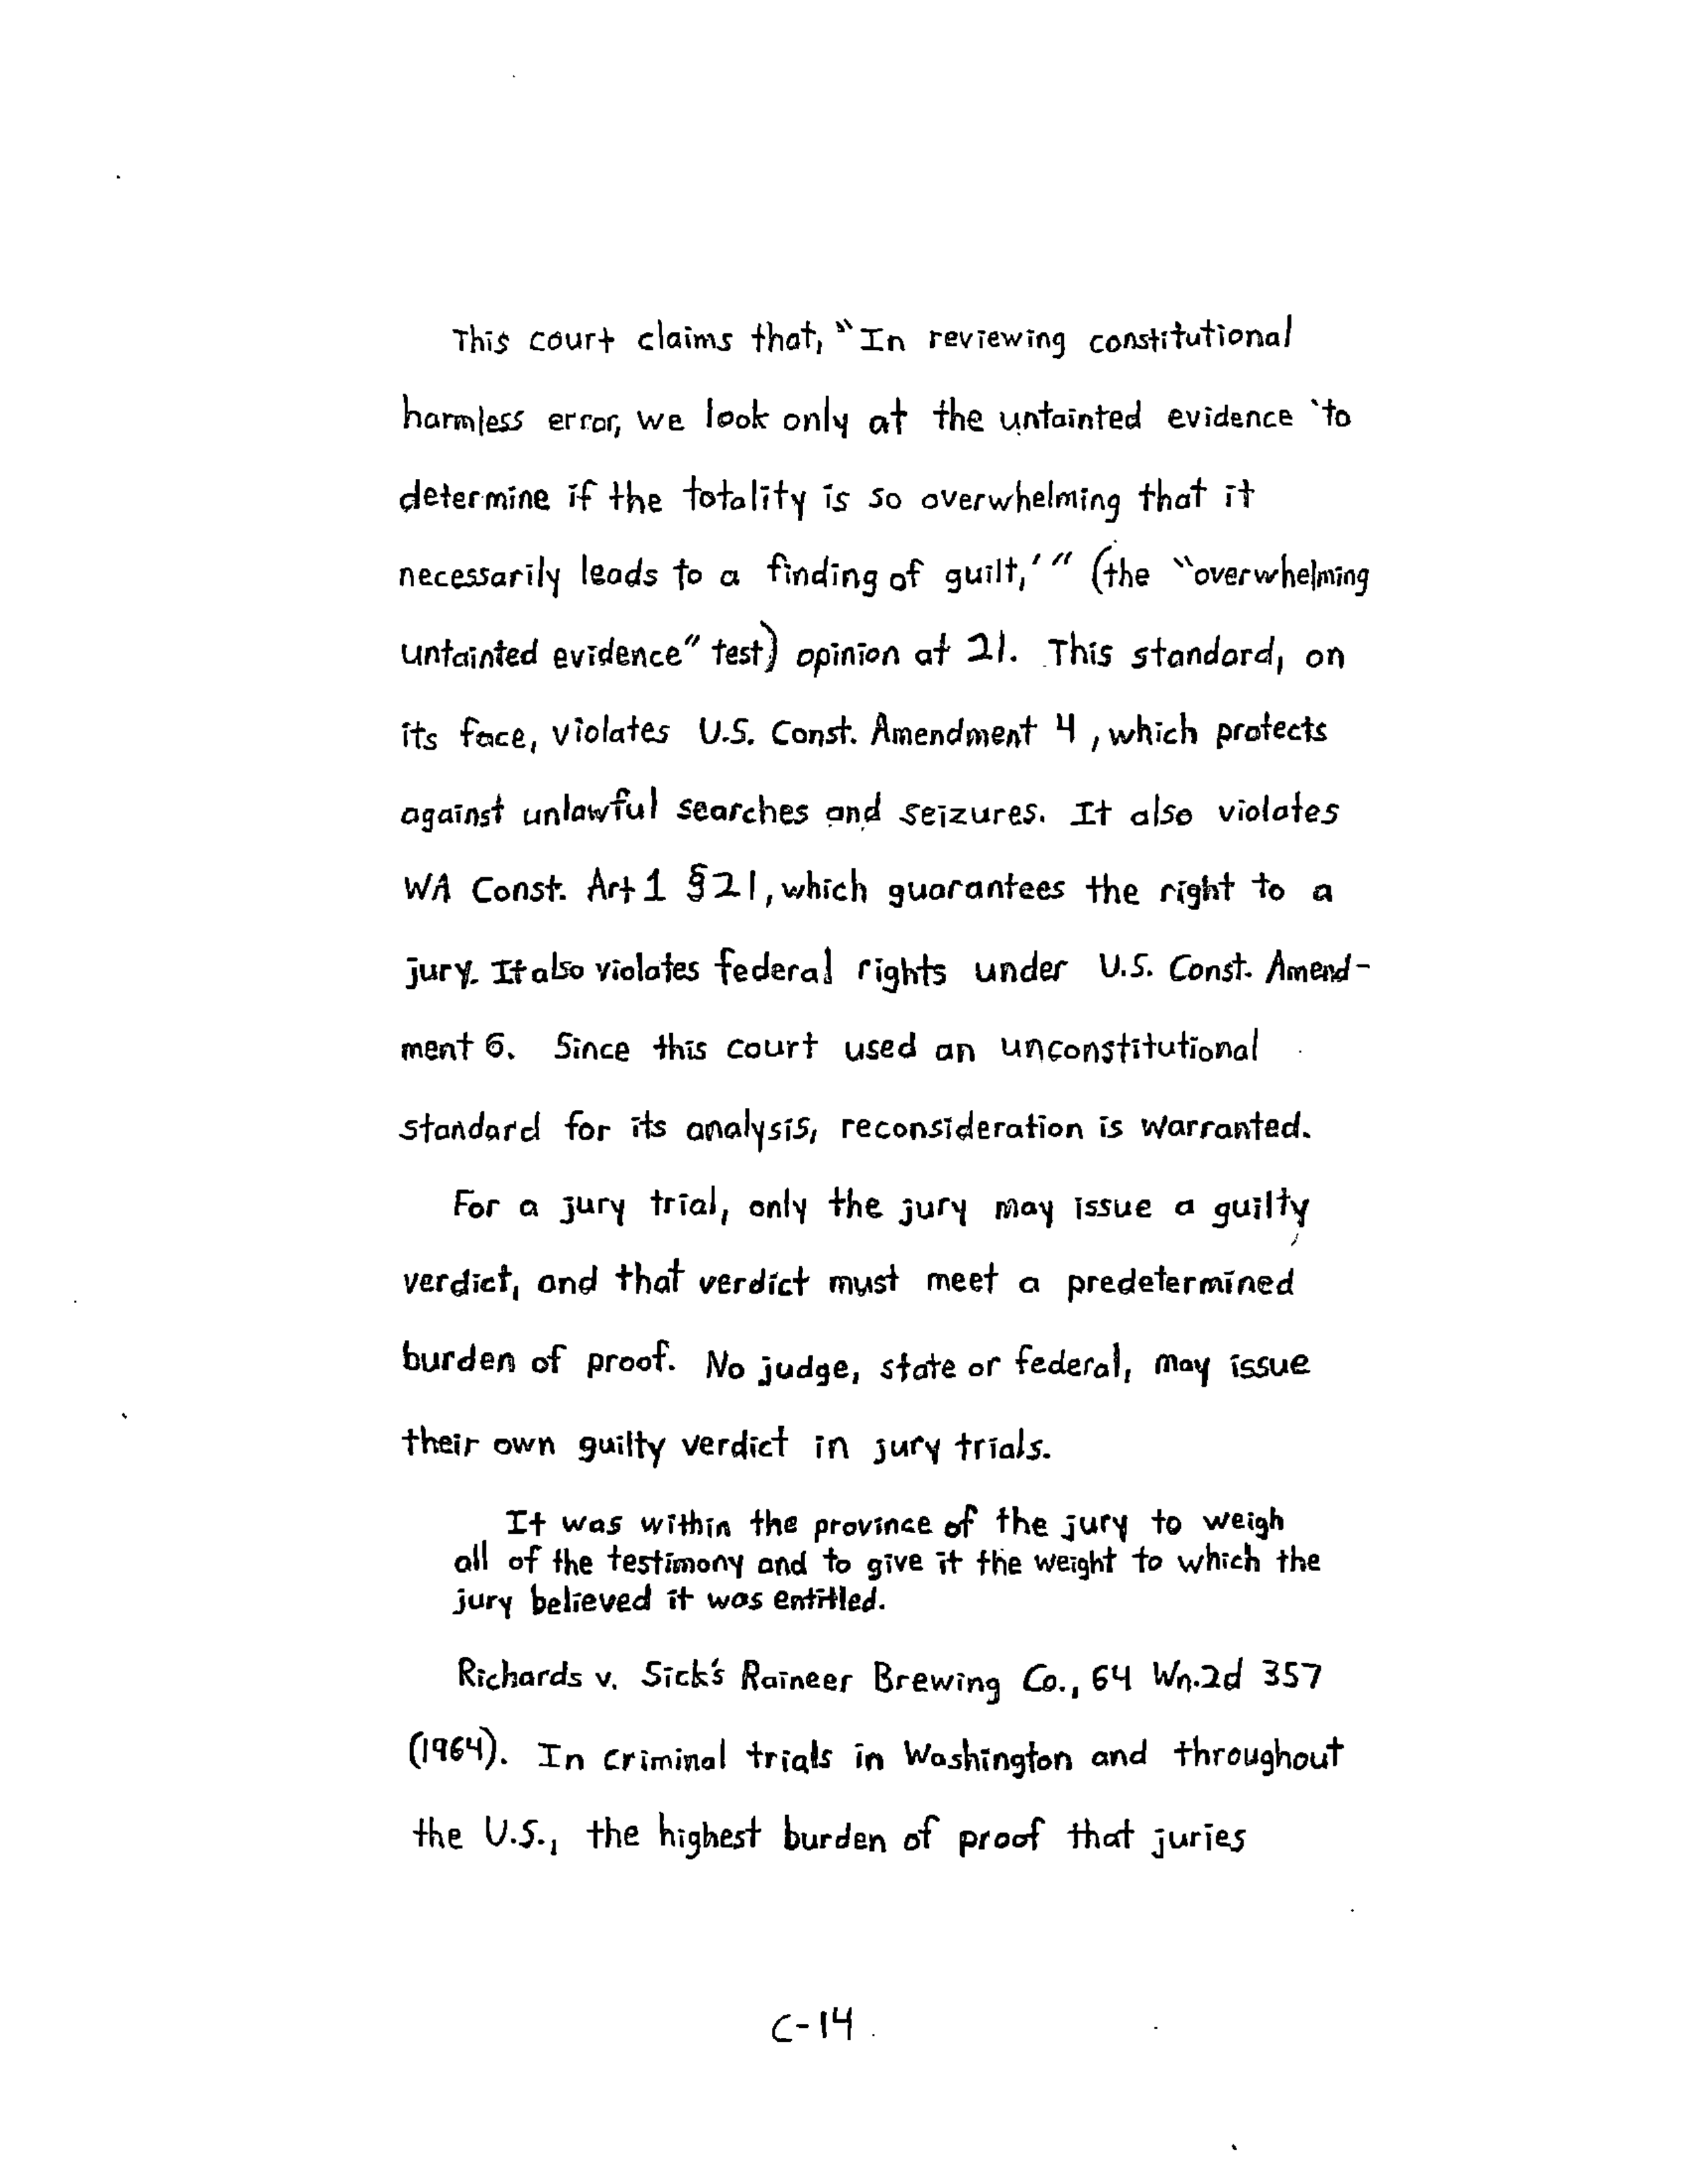 This court claims that, "In reviewing constitutional
harmless error, we look only at the untainted evidence 'to
determine if the totality is so overwhelming that it
necessarily leads to a finding of guilt,'" (the "overwhelming
untainted evidence" test) opinion at 21. This standard, on
its face, violates U.S. Const. Amendment 4, which protects
against unlawful searches and seizures. It also violates
WA Const. Art 1 §21, which guarantees the right to a
jury. It also violates federal rights under U.S. Const. Amend-
ment 6. Since this court used an unconstitutional
standard for its analysis, reconsideration is warranted.
For a jury trial, only the jury may issue a guilty
verdict, and that verdict must meet a predetermined
burden of proof. No judge, state or federal, may issue
their own guilty verdict in jury trials.
It was within the province of the jury to weigh
all of the testimony and to give it the weight to which the
jury believed it was entitled.
Richards v. Sick's Raineer Brewing Co., 64 Wn.2d 357
(1964). In criminal trials in Washington and throughout
the U.S., the highest burden of proof that juries
C-14